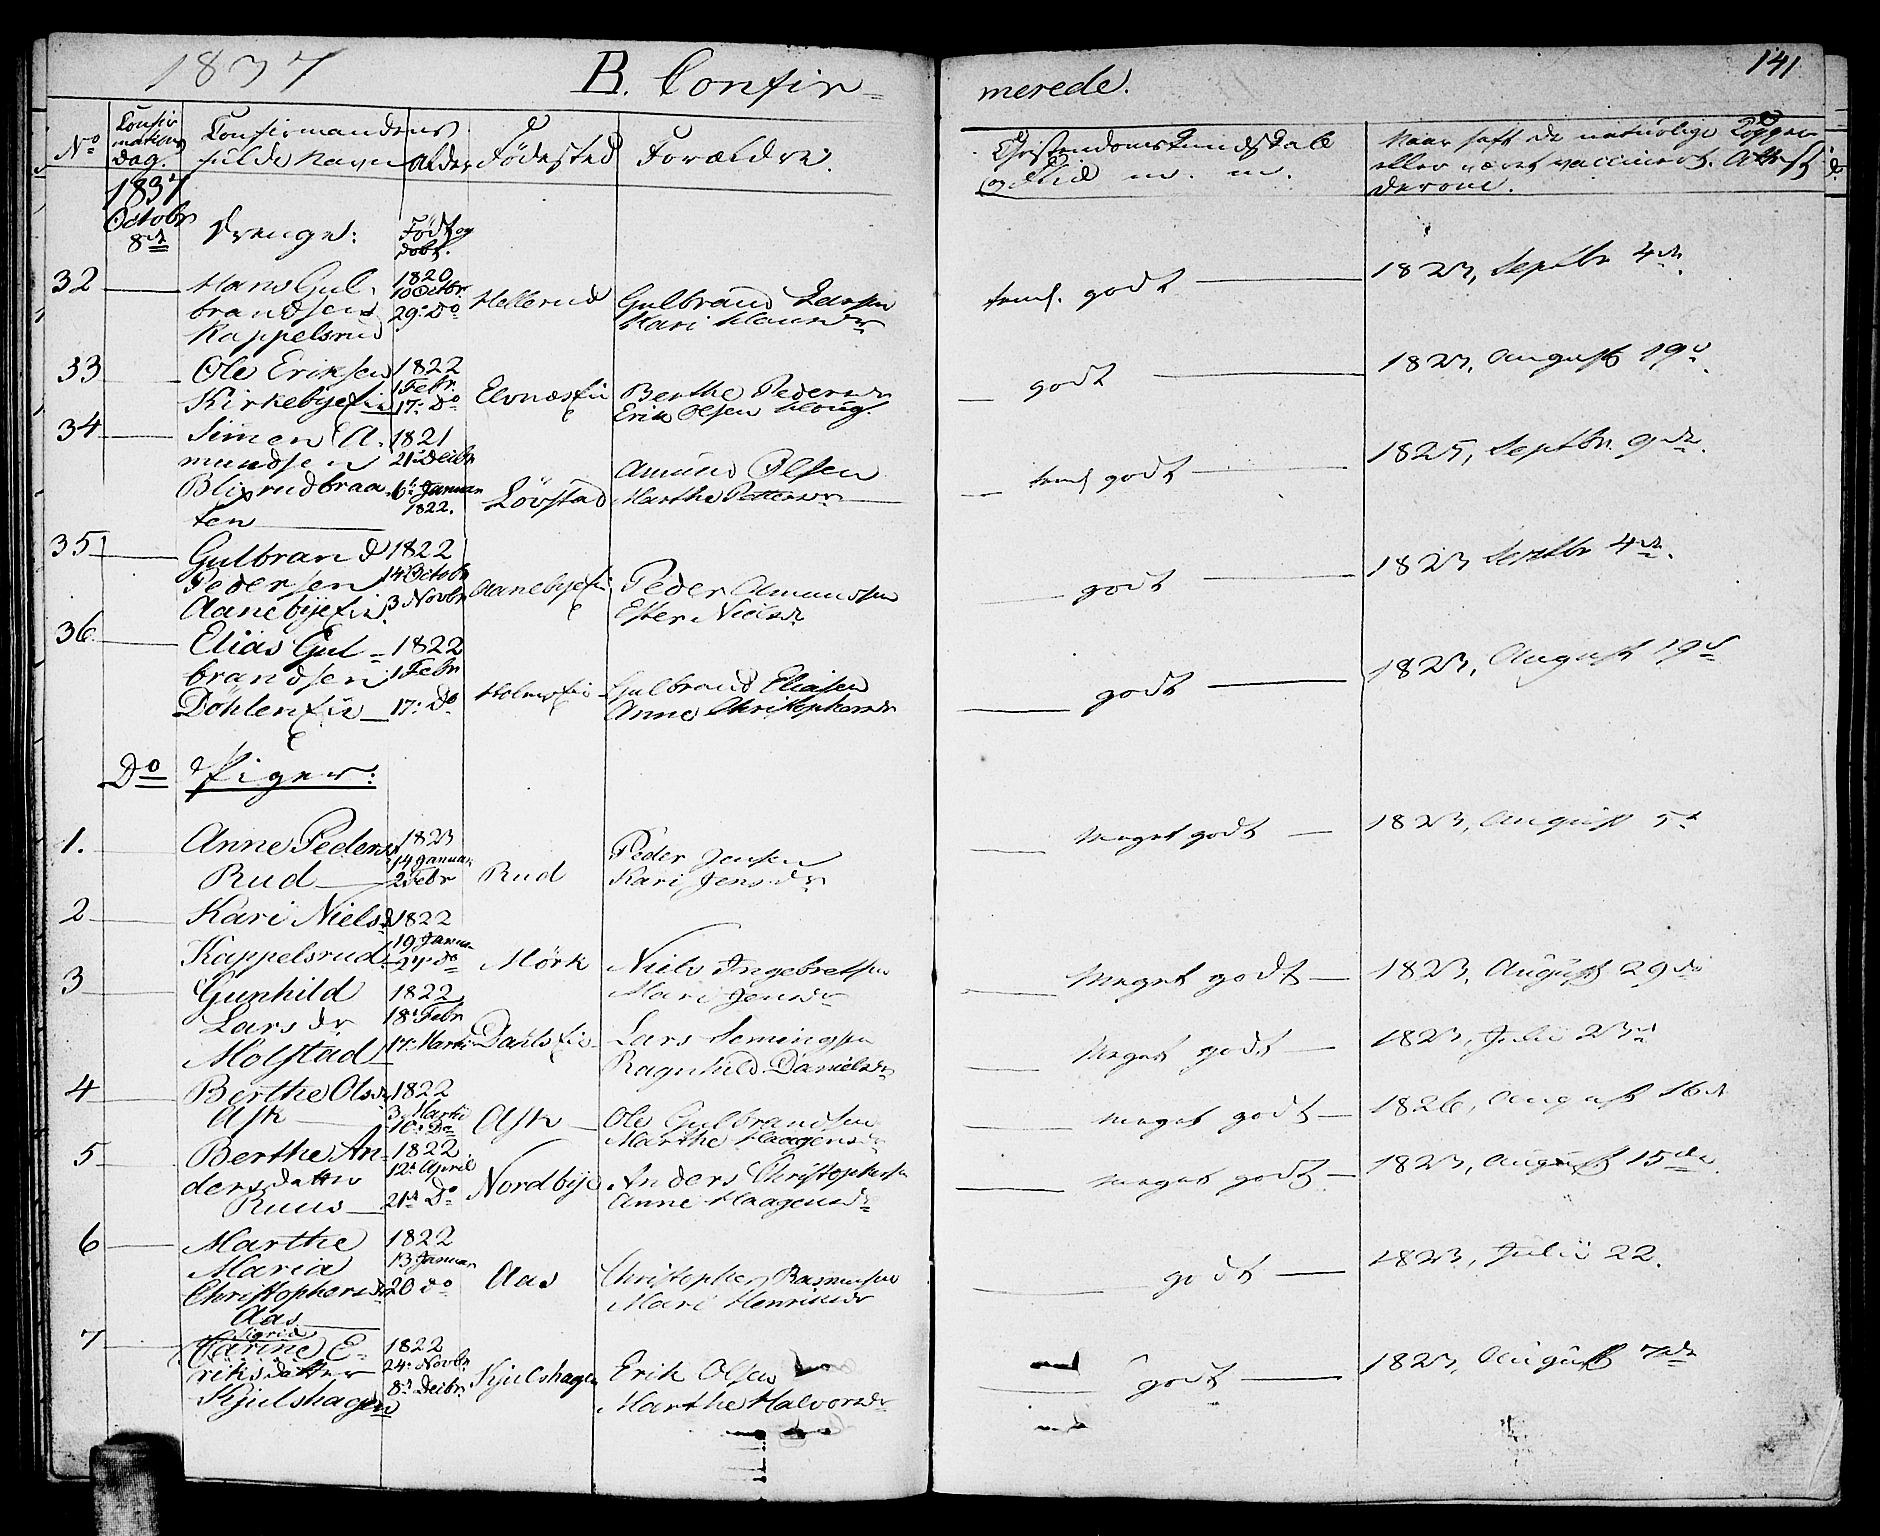 1837 B. Confir-
merede.
141
No Confirmations Dag. Confirmandens fulde Navn Alder Fødested Forældre.
Christendoms Kundskab og Flid m. m.
Naar haft de naturlige Kopper eller været vaccineret. Attest derom.
1837 Octobr 8de Drenge: Født og døbt.
32 Hans Gulbrandsen Kappelsrud 1820 10 Octbr. 29: Do Hellerud Gulbrand Larsen Kari Hansdr
temf. godt 1823, Septbr 4de.
33 Ole Eriksen Kirkebyeie 1822 1 Febr. 17: Do Elvnæseie Berthe Pedersdr Erik Olsen Houg.
godt 1823, August 19d.
34 Simen Amundsen Blixrudbraaten 1821 21 Decbr 6t Januar 1822. Løvstad Amund Olsen Marthe Pettersdr
temf godt 1825, Septbr. 9de.
35 Gulbrand Pedersen Aanebyeie 1822 14 Octobr 3 Novbr Aanebyeie Peder Amundsen Ester Nielsdr
godt 1823 Septbr 4de.
36 Elias Gulbrandsen Døhleneie 1822 1 Febr 17: Do Holmseie Gulbrand Eliasen Anne Christophersdr
godt 1823, August 19d
Do Piger:
1. Anne Pedersdr Rud 1823 14 Januar 2 Febr Rud Peder Jensen Kari Jensdr
meget godt 1823, August 5t
2 Kari Nielsdr Kappelsrud 1822 19 Januar 27 do Mørk Niels Ingebretsen Mari Jensdr
meget godt 1823, August 29de
3 Gunhild Larsdr Molstad 1822 18t Febr 17: Marti Dahlseie Lars Semingsen Ragnhild Danielsdr
meget godt 1823, Julii 23d
4 Berthe Olsdr Ask 1822 3 Marti 10: Do Ask Ole Gulbrandsen Marthe Haagensdr
meget godt 1826, August 16d
5 Berthe Andersdatter Ruus 1822 12t April 21de Do Nordbye Anders Christophersen Anne Haagensdr
meget godt 1823, August 15de.
6 Marthe Maria Christophersdr Aas 1822 13 Januar 20 do Aas Christopher Rasmusen Mari Henriksdr
godt 1823, Julii 22.
7 Sigrid Carine Eriksdatter Kjulshagen 1822 24: Novbr 8d Decbr Kjulshagen Erik Olsen Marthe Halvorsdr
godt 1823, August 7de